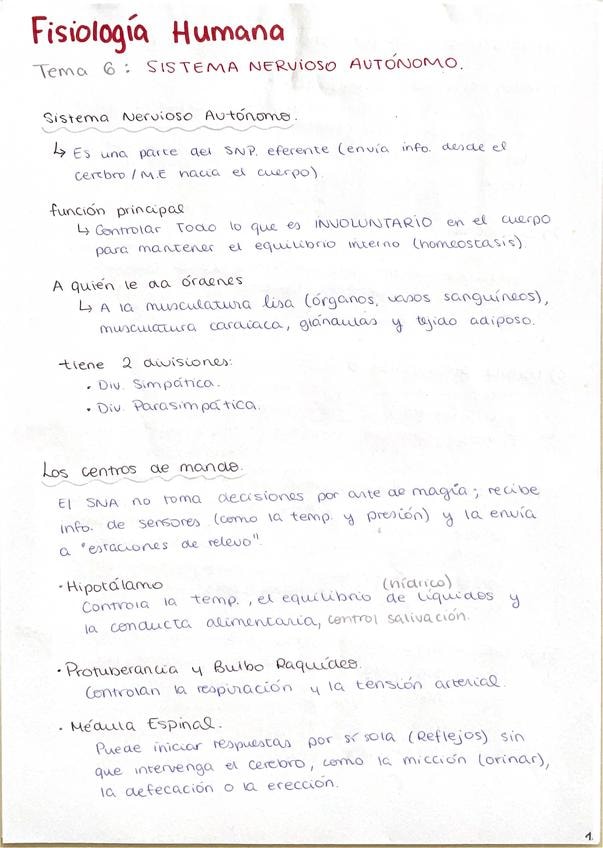 Fisiología Humana
Tema 6: SISTEMA NERVIOSO AUTÓNOMO.
Sistema Nervioso Autónomo.
↳ Es una parte del SNP. eferente (envía info. desde el
cerebro / M.E hacia el cuerpo).
función principal
↳ Controlar Todo lo que es INVOLUNTARIO en el cuerpo
para mantener el equilibrio interno (homeostasis)
A quién le da órdenes
↳ A la musculatura lisa (órganos, vasos sanguíneos),
musculatura cardiaca, glándulas y tejido adiposo.
tiene 2 divisiones:
• Div. Simpática.
• Div. Parasimpática.
Los centros de mando.
El SNA no toma decisiones por arte de magia; recibe
info. de sensores (como la temp. y presión) y la envía
a "estaciones de relevo".
• Hipotálamo
(hídrico)
Controla la temp., el equilibrio de líquidos y
la conducta alimentaria, control salivación.
• Protuberancia y Bulbo Raquídeo.
Controlan la respiración y la tensión arterial.
• Médula Espinal.
Puede iniciar respuestas por sí sola (Reflejos) sin
que intervenga el cerebro, como la micción (orinar),
la defecación o la erección.
1.